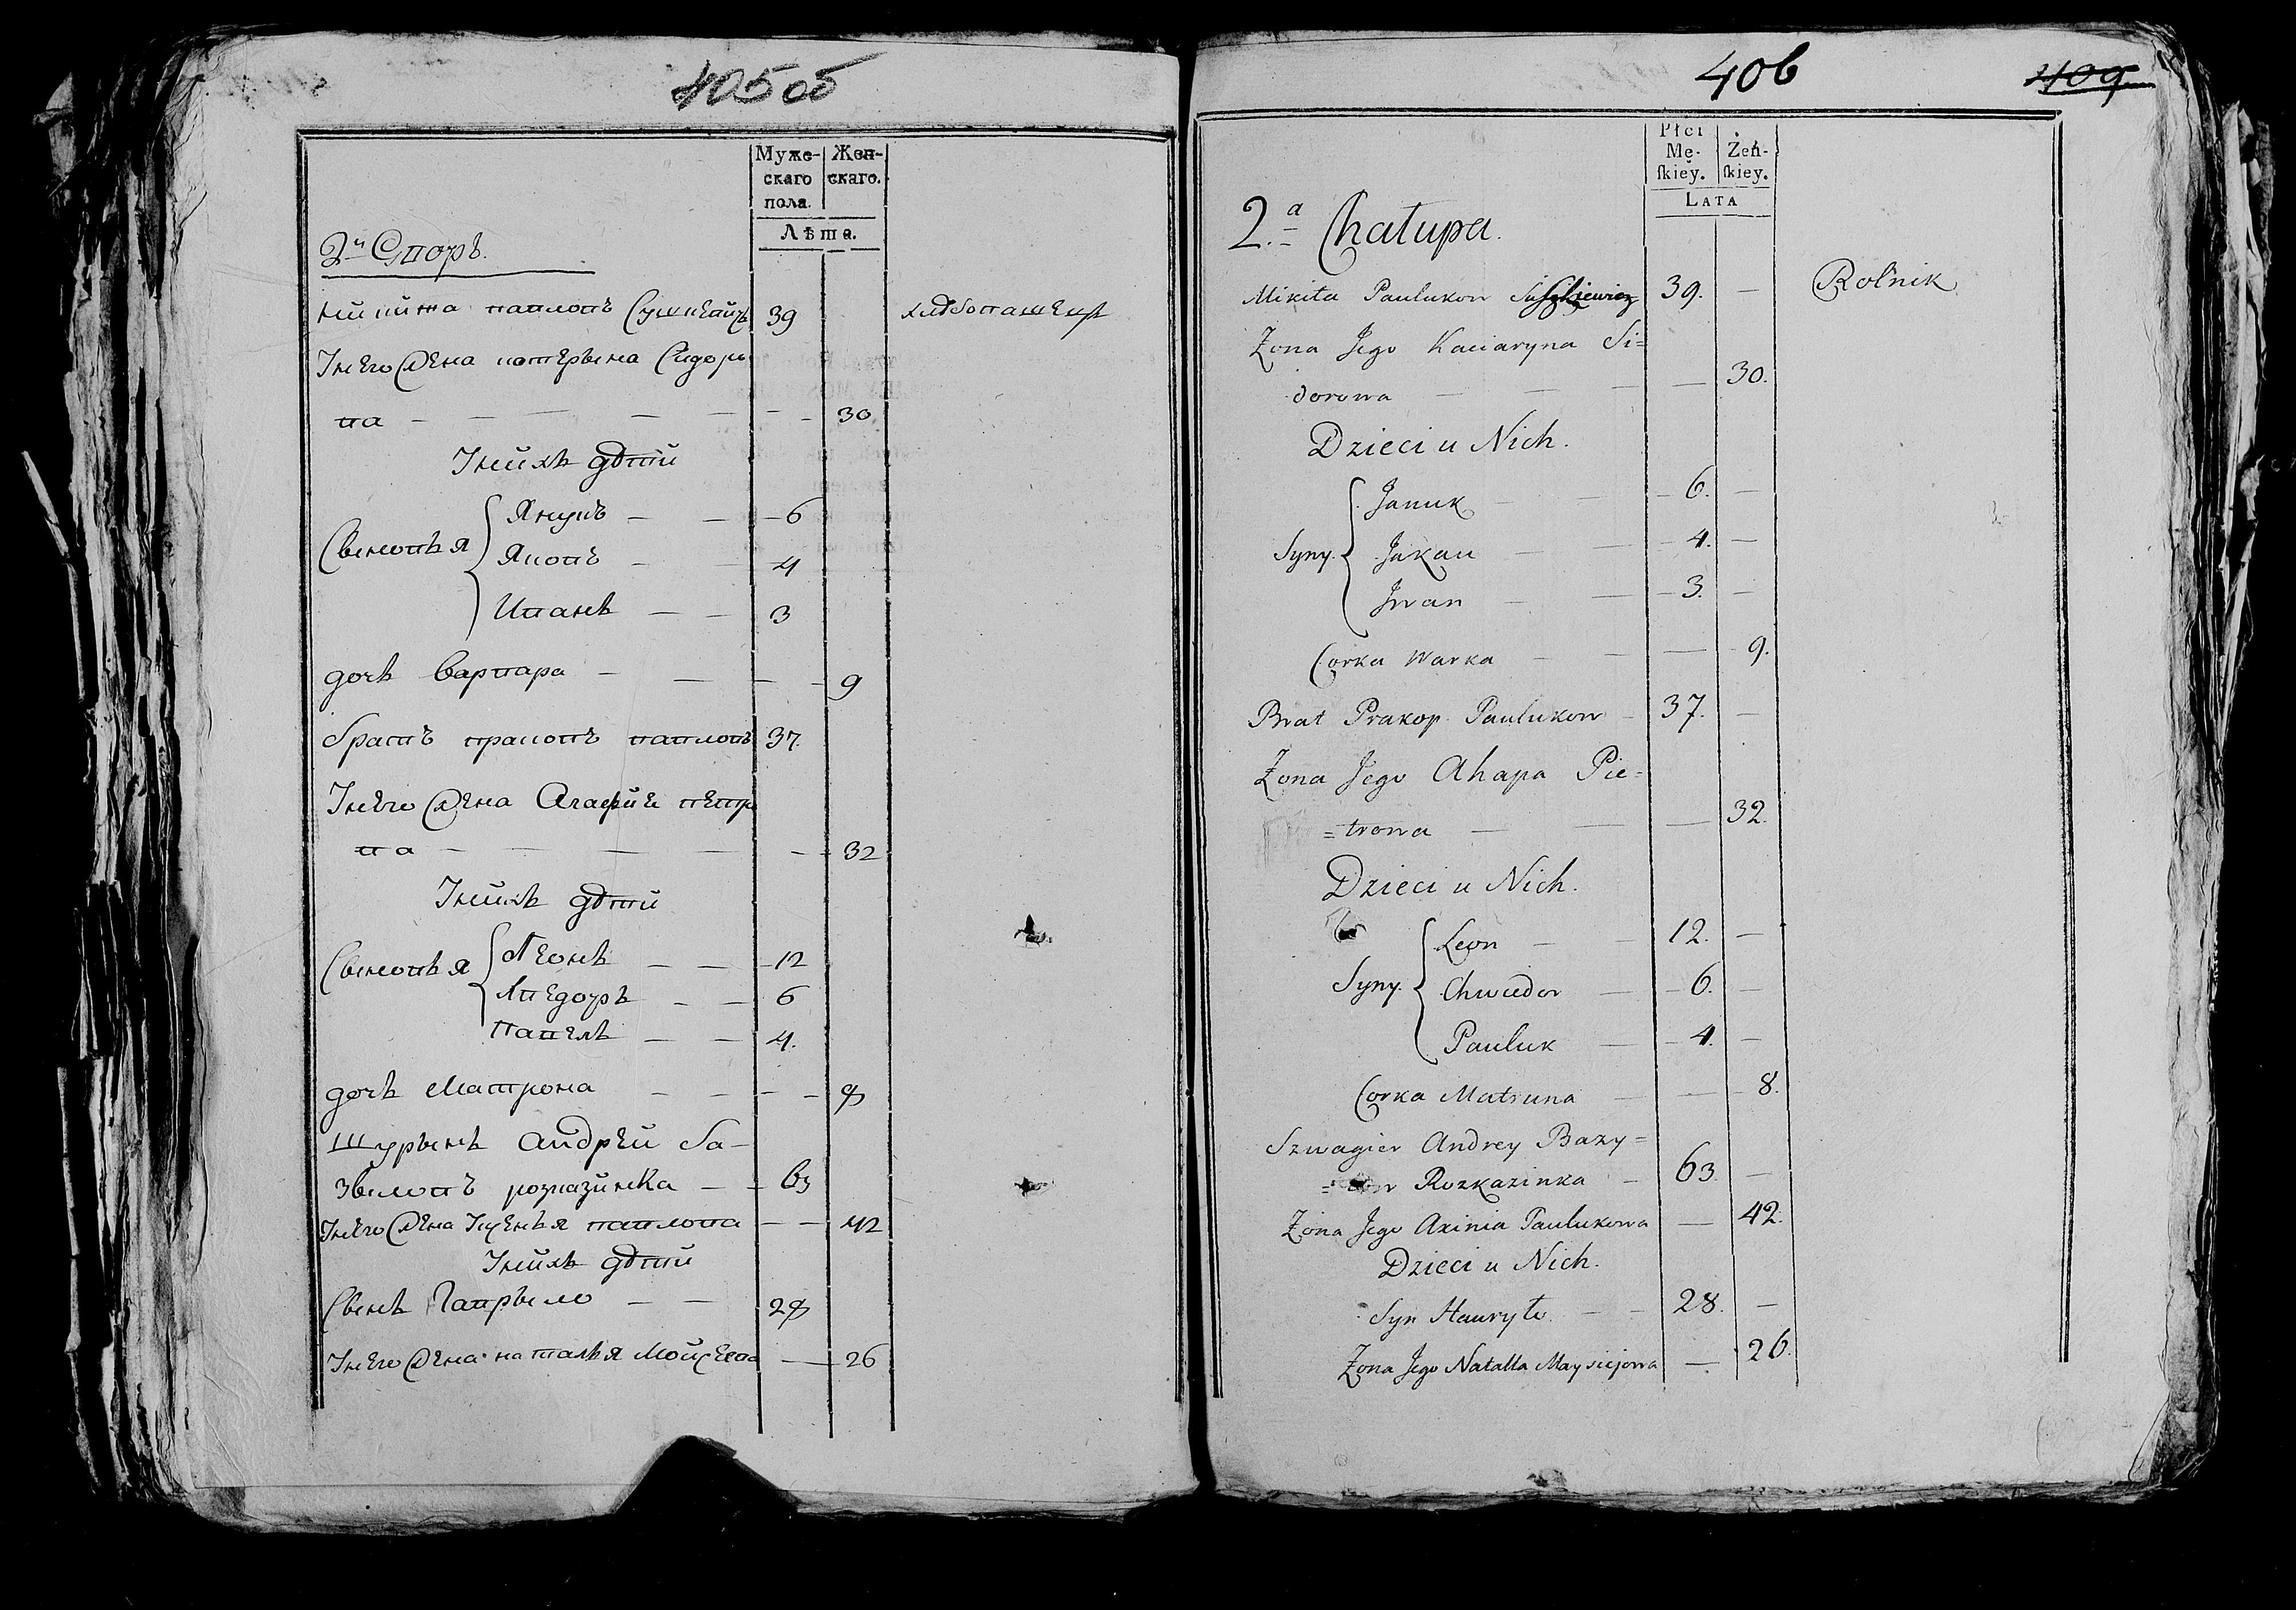 405 об
Муже- Жен-
скаго скаго.
пола.
Лѣта.
2й Дворъ.
Никита павловъ Сушкевичъ 39 хлѣбопашецъ
У него жена катерына Сидоро
ва — — — — — — — 30
У нихъ дѣти
Янукъ — — 6
Сыновья Яковъ — — 4
Иванъ — — 3
дочь варвара — — — — 9
братъ пракопъ павловъ 37.
У него жена Агафия петро
ва — — — — — — 32
У нихъ дѣти
Сыновья Леонъ — — 12
Хведоръ — — 6
Павелъ — — 4.
дочь Матрона — — — — 8
Шурынъ Андрей ба-
зылювъ розказинка — — 63
У него жена Ксенья павлова — — 42
У нихъ дѣти
Сынъ Гаврыло — — 28
У него жена наталья Мойсеева — 26
406 409
Płci
Mę- Żeń-
ſkiey. ſkiey.
LATA
2.a Chałupa.
Mikita Paulukow Suszkiewicz 39. — Rolnik
Żona Jego Kaciaryna Si=
dorowa — — — — 30.
Dzieci u Nich.
Januk — — 6. —
Syny. Jakau — — 4. —
Jwan — — 3. —
Corka Warka — — — 9.
Brat Prakop Paulukow — 37. —
Żona Jego Ahapa Pie=
=trowa — — — 32.
Dzieci u Nich.
Leon — — 12. —
Syny. Chwiedor — 6. —
Pauluk — 4. —
Corka Matruna — — 8.
Szwagier Andrey Bazy=
= Rozkazinka — 63. —
Żona Jego Axinia Paulukowa — 42.
Dzieci u Nich.
Syn Hauryło. — — 28. —
Żona Jego Natalla Maysiejowa — 26.